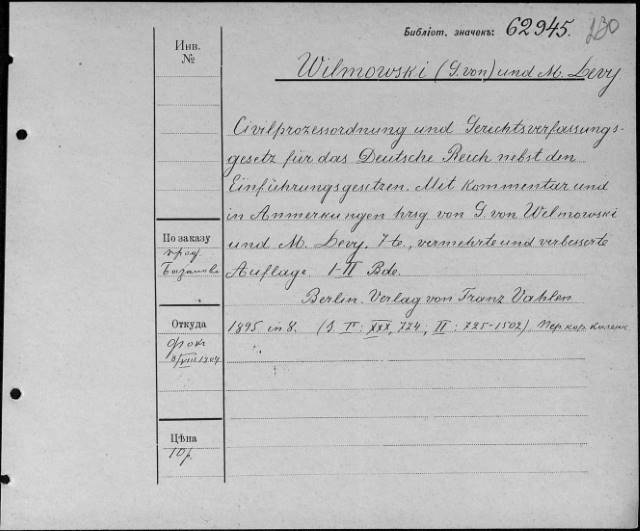 Библіот. значокъ: 62945. 130
Инв.
№
Wilmowski (G. von) und M. Levy.
Civilprozessordnung und Gerichtsverfassungs-
gesetz für das Deutsche Reich nebst den
Einführungsgesetzen. Mit Kommentar und
in Anmerkungen hrsg. von G. von Wilmowski
und M. Levy. 7-te, vermehrte und verbesserte
Auflage. I-II Bde.
Berlin. Verlag von Franz Vahlen
1895 in 8. (I: XXX, 724, II: 725-1502) Пер. кор. коленк
По заказу
проф.
Базанова
Откуда
Фок
Цѣна
10 р.